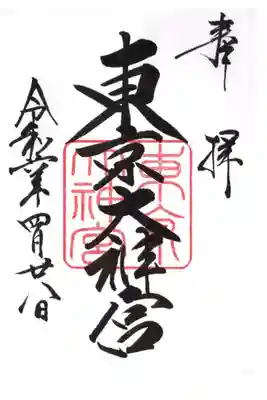 奉拝
東京大神宮
東京大神宮
令和年四月廿八日